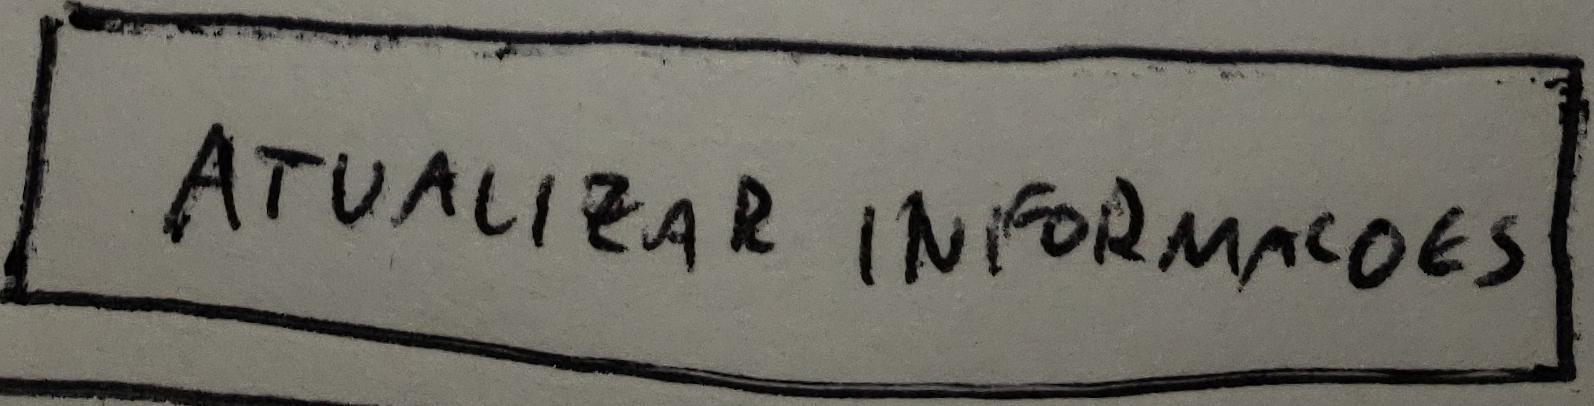 ATUALIZAR INFORMACOES